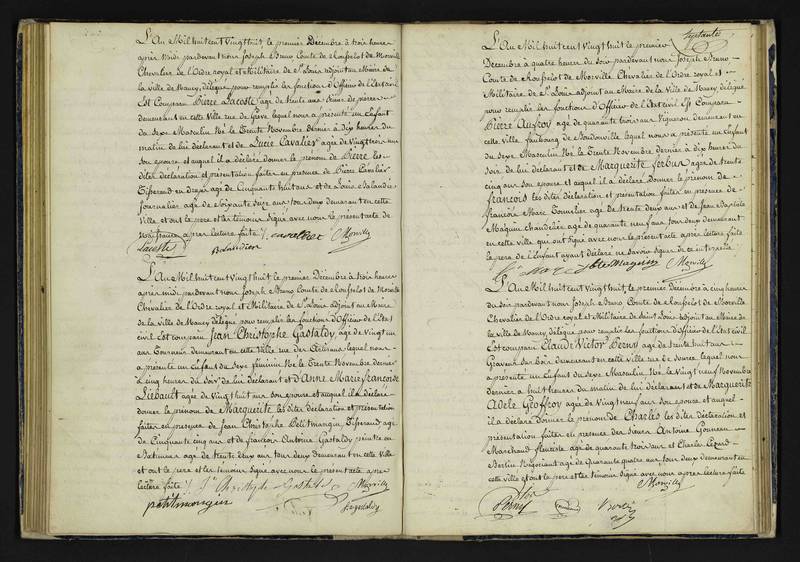 L'An Mil huit cent vingt huit le premier Décembre à trois heures
après midi pardevant nous Joseph Bruno Comte de Rousselot de Morville
Chevalier de l'Ordre royal et Militaire de St Louis adjoint au Maire de
la ville de Nancy, délégué pour remplir les fonctions d'Officier de l'Etat civil
Est Comparu Pierre Lacoste agé de trente ans
demeurant en cette Ville rue de Grève lequel nous a présenté un Enfant
du sexe Masculin Né le Trente Novembre dernier à dix heures du
matin de lui déclarant et de Lucie Cavalier agée de Vingt trois ans
son épouse et auquel il a déclaré donner le prénom de Pierre les
dites déclaration et présentation faites en présence de Pierre Cavalier
Tisserand en draps agé de Cinquante huit ans et de Louis Balandier
journalier agé de soixante seize ans tous deux demeurant en cette
Ville et ont le père et les témoins signé avec nous le présent acte de
naissance après lecture faite
Lacoste cavalier Morville
Balandier
L'An Mil huit cent Vingt huit le premier Décembre à trois heures
après midi pardevant nous Joseph Bruno Comte de Rousselot de Morville
Chevalier de l'Ordre royal et Militaire de St Louis adjoint au Maire
de la ville de Nancy délégué pour remplir les fonctions d'Officier de l'Etat
civil Est comparu Jean Christophe Gastaldy, agé de Vingt
ans Tourneur demeurant en cette Ville rue des Artisans lequel nous
a présenté un Enfant du sexe féminin Né le Trente Novembre dernier
à Cinq heures du soir de lui déclarant et d'Anne Marie françoise
Liebault agée de Vingt huit ans son épouse et auquel il a déclaré
donner le prénom de Marguerite les dites déclaration et présentation
faites en présence de Jean Christophe Petitmangin Tisserand agé
de Cinquante cinq ans et de francois Antoine Gastaldy peintre en
Batimens agé de trente deux ans tous deux Demeurant en cette Ville
et ont le père et les témoins signé avec nous le présent acte après
lecture faite Jn Christophe Gastaldy Morville
petitmangin Gastaldy
septante
L'An Mil huit cent Vingt huit le premier
Décembre à quatre heures du soir pardevant nous Joseph Bruno
Comte de Rousselot de Morville Chevalier de l'Ordre royal et
Militaire de St Louis adjoint au Maire de la Ville de Nancy délégué
pour remplir les fonctions d'Officier de l'Etat civil Est Comparu
Pierre Aufroy agé de quarante trois ans Vigneron demeurant en
cette Ville faubourg de Boudonville lequel nous a présenté un Enfant
du sexe Masculin Né le Trente Novembre dernier à dix heures du
soir de lui déclarant et de Marguerite Ferban agée de trente
cinq ans son épouse et auquel il a déclaré donner le prénom de
françois les dites déclaration et présentation faites en présence de
françois Marc Tonnelier agé de trente deux ans et de Jean Baptiste
Maguin Chandelier agé de quarante neuf ans tous deux demeurant
en cette ville qui ont signé avec nous le présent acte après lecture faite
le père de l'Enfant ayant déclaré ne savoir signer de ce interpellé
Marc Jbte Maguin Morville
L'An Mil huit cent Vingt huit, le premier Décembre à cinq heures
du soir pardevant nous Joseph Bruno Comte de Rousselot de Morville
Chevalier de l'Ordre royal et Militaire de Saint Louis adjoint au Maire de
la ville de Nancy, délégué pour remplir les fonctions d'Officier de l'Etat civil
Est comparu Claude Victor Perny agé de trente huit ans
Graveur sur bois demeurant en cette ville rue de lequel nous
a présenté un Enfant du sexe Masculin Né le Vingt neuf Novembre
dernier à huit heures du matin de lui déclarant et de Marguerite
Adèle Geoffroy agée de Vingt neuf ans son épouse et auquel
il a déclaré donner le prénom de Charles les dites déclaration et
présentation faites en présence des sieurs Antoine Gonneau
Marchand fleuriste agé de quarante trois ans et Charles
Bertin Négociant agé de Quarante quatre ans tous deux demeurant en
cette Ville et ont le père et les témoins signé avec nous après lecture faite
Morville
Perny